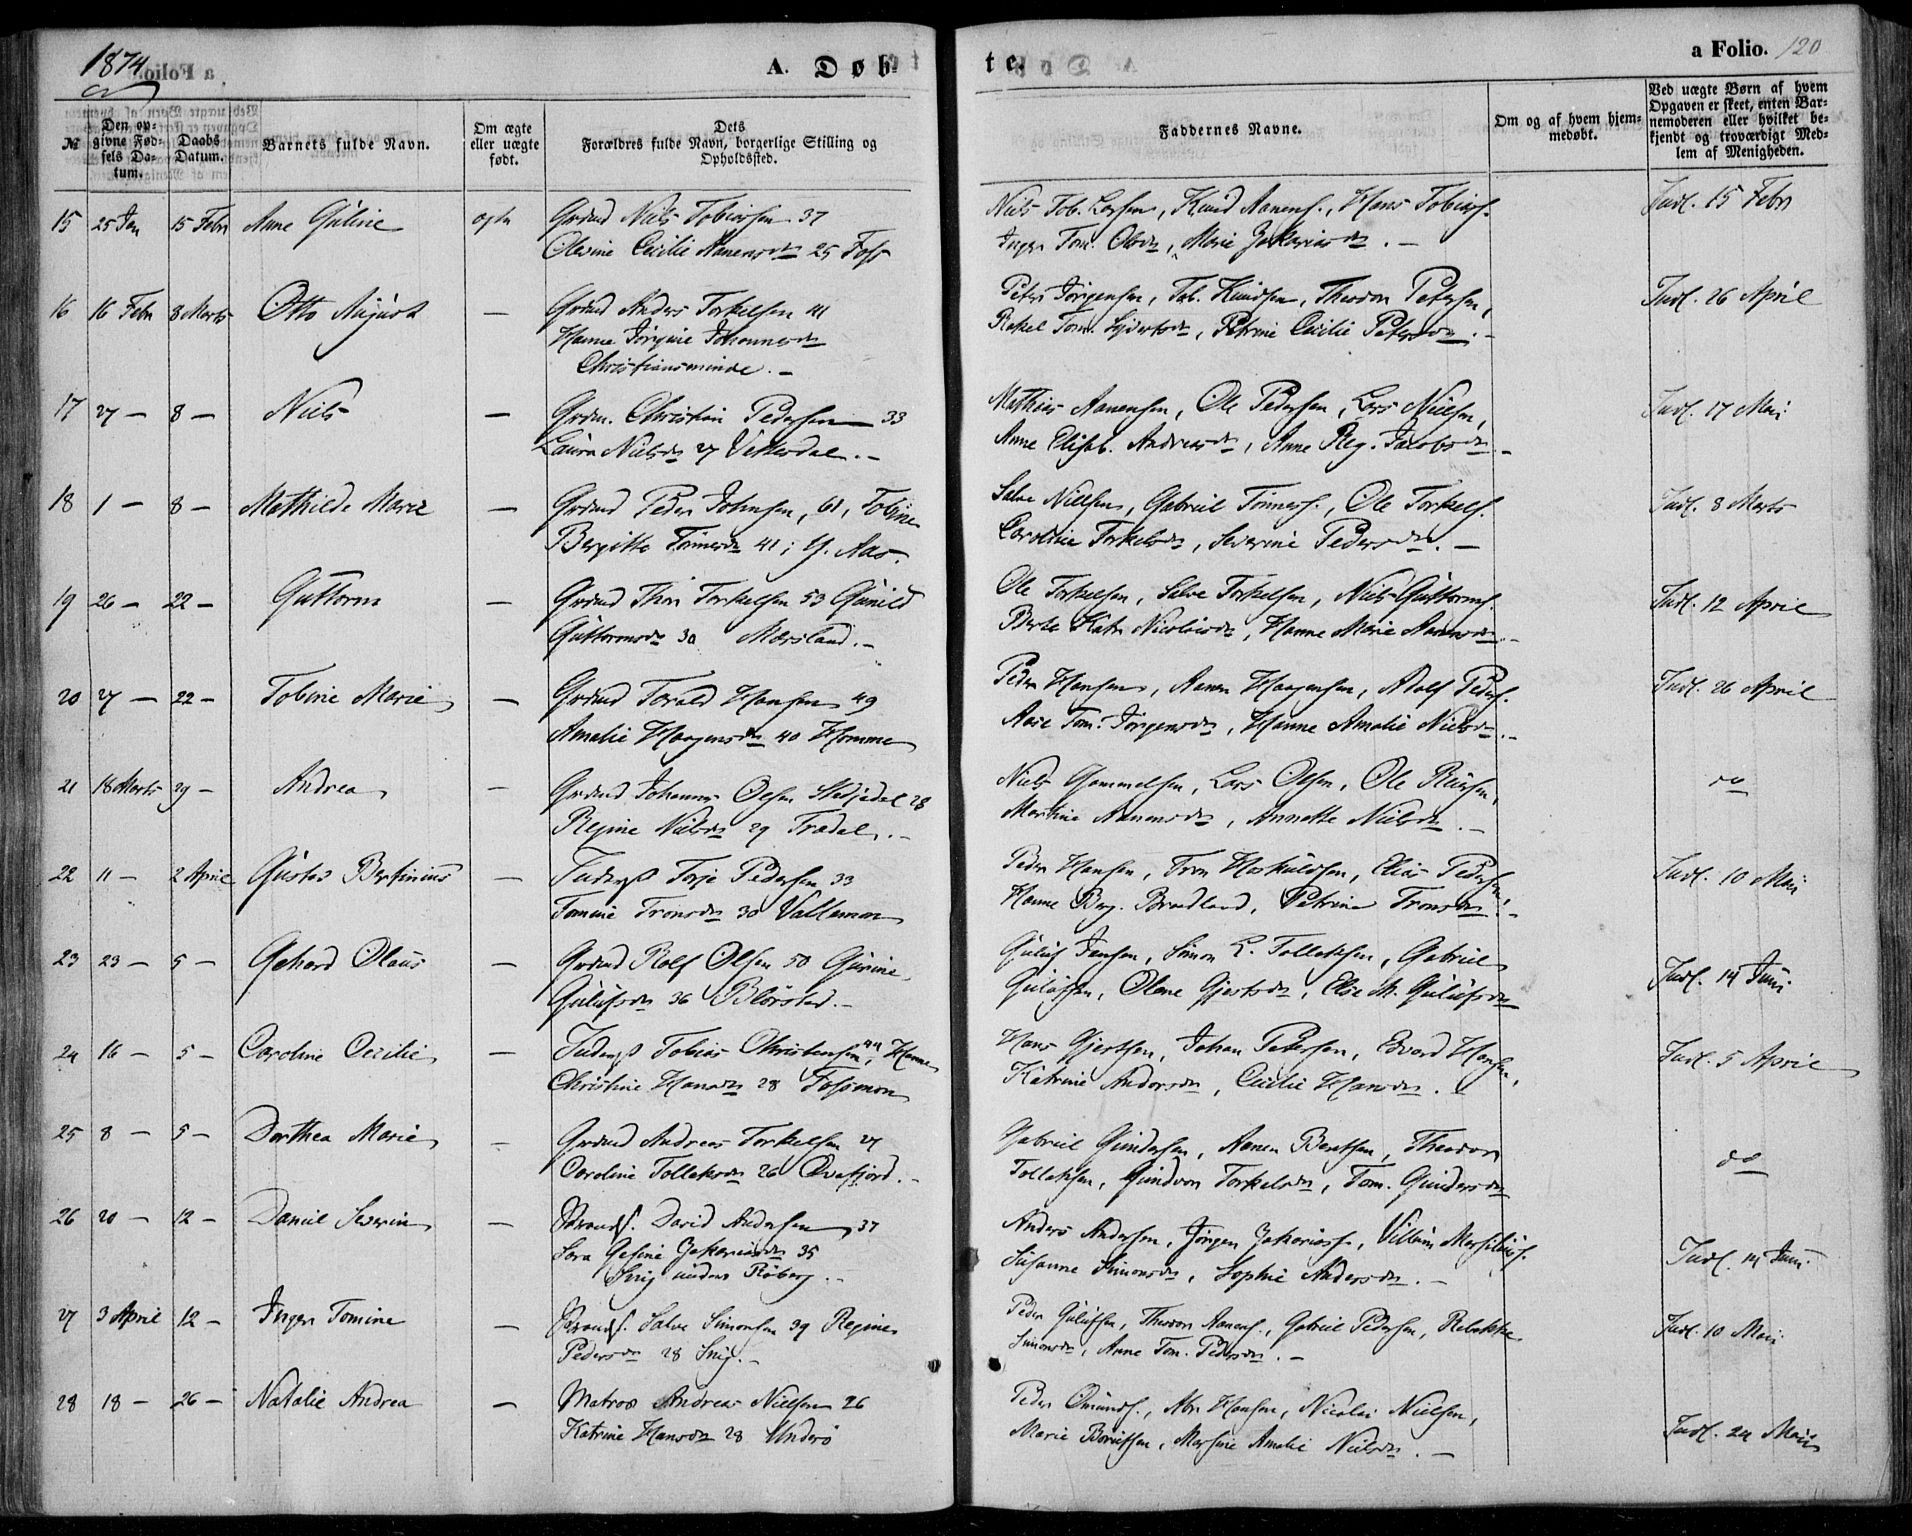 1874
A. Døbte.
a Folio. 120
№
Den opgivne Fødsels Datum.
Daabs Datum.
Barnets fulde Navn.
Om ægte eller uægte født.
Dets Forældres fulde Navn, borgerlige Stilling og Opholdssted.
Faddernes Navne.
Om og af hvem hjemmedøbt.
Ved uægte Børn af hvem Opgaven er skeet, enten Barnemoderen eller hvilket bekjendt og troværdigt Medlem af Menigheden.
15 25 Jan 15 Febr Anne Guline ægte Grdmd Niels Tobiassen 37
Olevine Cecilie Aanensd 25 Foss
Niels Tob. Larsen, Knud Aanens., Hans Tobiass.
Inger Tom. Olsd, Marie Zakariasd. –
Indl. 15 Febr
16 16 Febr 8 Marts Otto August – Grdmd Anders Torkelsen 41
Hanne Jörgine Johannesd
Christiansminde. –
Peter Jörgensen, Tob. Knudsen, Theodor Petersen,
Rakel Tom. Sjvertsd, Petrine Cecilie Petersd. –
Indl. 26 April
17 27 – 8 – Niels – Grdm. Christian Pedersen 33
Laura Nielsd 27 Vetterdal. –
Mathias Aanensen, Ole Pedersen, Lars Nielsen,
Anne Elisab. Andreasd, Anne Reg. Jacobsd –
Indl. 17 Mai
18 1 – 8 – Mathilde Marie – Grdmd Peder Johnsen, 61, Tobine
Bergitte Tönnesd 41; Y. Aas.
Salve Nielsen, Gabriel Tönness., Ole Torkels.
Caroline Torkelsd, Severine Pedersd. –
Indl. 8 Marts
19 26 – 22 – Guttorm – Grdmd Thor Torkelsen 53 Gunild
Guttormsd 30 Mæsland. –
Ole Torkelsen, Salve Torkelsen, Niels Guttorms.
Berte Katr. Nicolaisd, Hanne Marie Aanensd –
Indl. 12 April
20 27 – 22 – Tobine Marie – Grdmd Torald Hansen 49
Amalie Haagensd 40 Homme
Peder Hansen, Aanen Haagensen, Adolf Peders.
Aase Tom. Jörgensd, Hanne Amalie Nielsd –
Indl. 26 April
21 18 Marts 29 – Andrea – Grdmd Johannes Olsen 28
Regine Nielsd 29 Tradal. –
Niels Gommelsen, Lars Olsen, Ole
Martine Aanensd, Annette Nielsd. –
do
22 11 – 2 April Gustav Bertinius – Inderst Torje Pedersen 33
Tomine Tronsd 30 Vallemon
Peder Hansen, Tron Hoskuldsen, Elias Pedersen,
Hanne Berg. Braadland, Petrine Tronsd. –
Indl. 10 Mai
23 23 – 5 – Gehard Olaus – Grdmd Rolf Olsen 50 Gurine
Gulufsd 36 Blörstad. –
Guluf Jensen, Simon L. Tollaksen, Gabriel
Gulufsen, Olene Gjertsd, Else M. Gulufsd
Indl. 14 Juni
24 16 – 5 – Caroline Cecilie – Inderst Tobias Christensen 44, Hanne
Christine Hansd 28 Fossmon
Hans Gjertsen, Johan Petersen, Edvard Hansen,
Katrine Andersd, Cecilie Hansd.
Indl. 5 April
25 8 – 5 – Dorthea Marie – Grdmd Andreas Torkelsen 27
Caroline Tollaksd 26 Qvafjord. –
Gabriel Gundersen, Aanen Bentsen, Theodor
Tollaksen, Gundvor Torkelsd, Tom. Gundersd
do
26 20 – 12 – Daniel Severin – Strands. David Andersen 37
Sara Gesine Zakariasd 35
Snig under Röberg. –
Anders Andersen, Jörgen Zakariass., Villum Marsilius.
Susanne Simonsd, Sophie Andersd. –
Indl. 14 Juni
27 3 April 12 – Inger Tomine – Strands. Salve Simonsen 39 Regine
Pedersd 28 Snig. –
Peder Gulufsen, Theodor Aanens., Gabriel Pedersen, Rebekke
Simonsd, Anne Tom. Pedersd. –
Indl. 10 Mai
28 18 – 26 – Natalie Andrea – Matros Andreas Nielsen 26
Katrine Hansd 28 Underö
Peder Omunds., Abr. Hansen, Nicolai Nielsen,
Marie Berntsen, Marsine Amalie Nielsd. –
Indl. 24 Mai